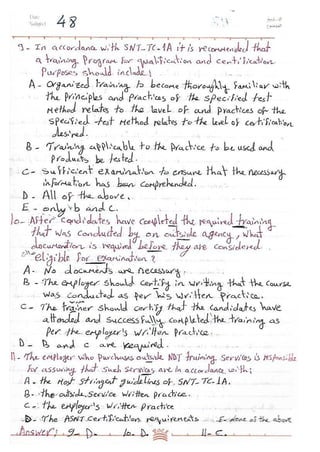 Date
Subject 48
9- In accordance with SNT-TC-1A it is recommended that
a training Program for qualification and certification
Purposes should include;
A- Organized Training to become thoroughly familiar with
the Principles and Practices of the specified test
Method relates to the level of and practices of the
Specified test Method relates to the level of certification
desired.
B- Training applicable to the Practice to be used and
Products be tested.
C- Sufficient examination to ensure that the necessary
information has been comprehended.
D- All of the above.
E- only b and c.
10- After Candidates have completed the required training
that was conducted by an outside agency, what
documention is required before they are considered
eligible for examination?
A- No documents are necessary.
B- The employer should certify in writing that the course
was conducted as per his written practice.
C- The trainer should certify that the candidates have
attended and successfully completed the training as
Per the employer's written Practice.
D- B and c are required.
11- The employer who purchases outside NDT training Services is responsible
for assuring that such services are in accordance with;
A- the Most Stringent guidelines of SNT-TC-1A.
B- the outside service written practice.
C- the employer's written practice
D- The ASNT Certification requirements E- None of the above
Answer; 9- D. 10. D. 11- C.